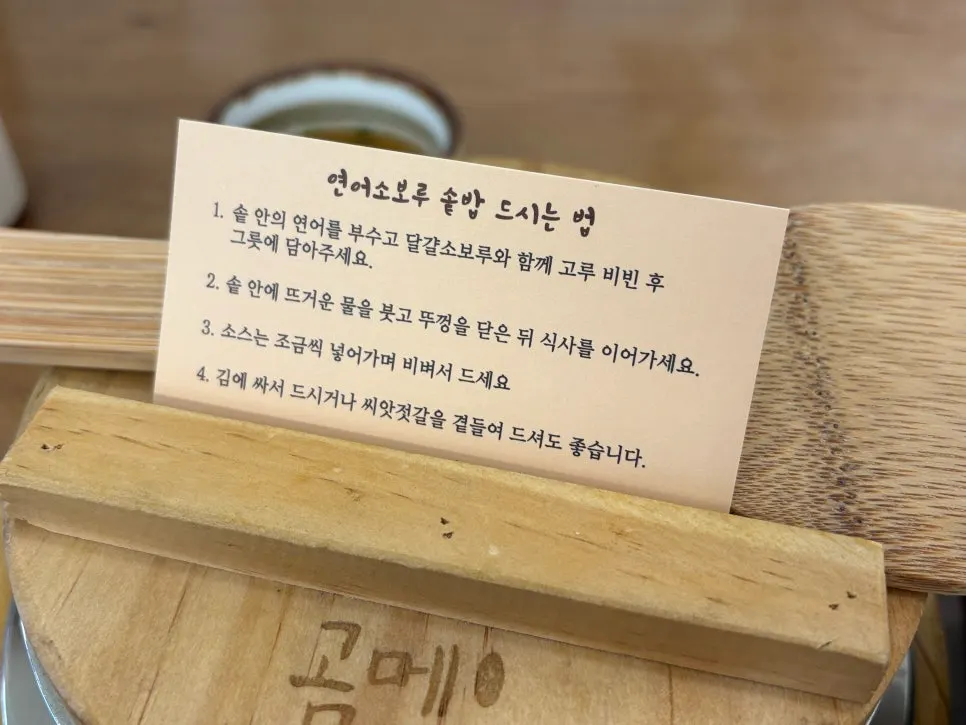 연어소보루 솥밥 드시는 법
1. 솥 안의 연어를 부수고 달걀소보루와 함께 고루 비빈 후
그릇에 담아주세요.
2. 솥 안에 뜨거운 물을 붓고 뚜껑을 닫은 뒤 식사를 이어가세요.
3. 소스는 조금씩 넣어가며 비벼서 드세요
4. 김에 싸서 드시거나 씨앗젓갈을 곁들여 드셔도 좋습니다.
곰메